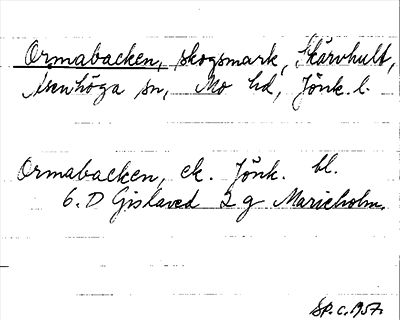 Ormabacken, skogsmark, Skärvhult,
Åsenhöga sn, Mo hd, Jönk. l.
Ormabacken, ek. Jönk. bl.
6. D Gislaved 2 g Marieholm.
SP. c. 1957.